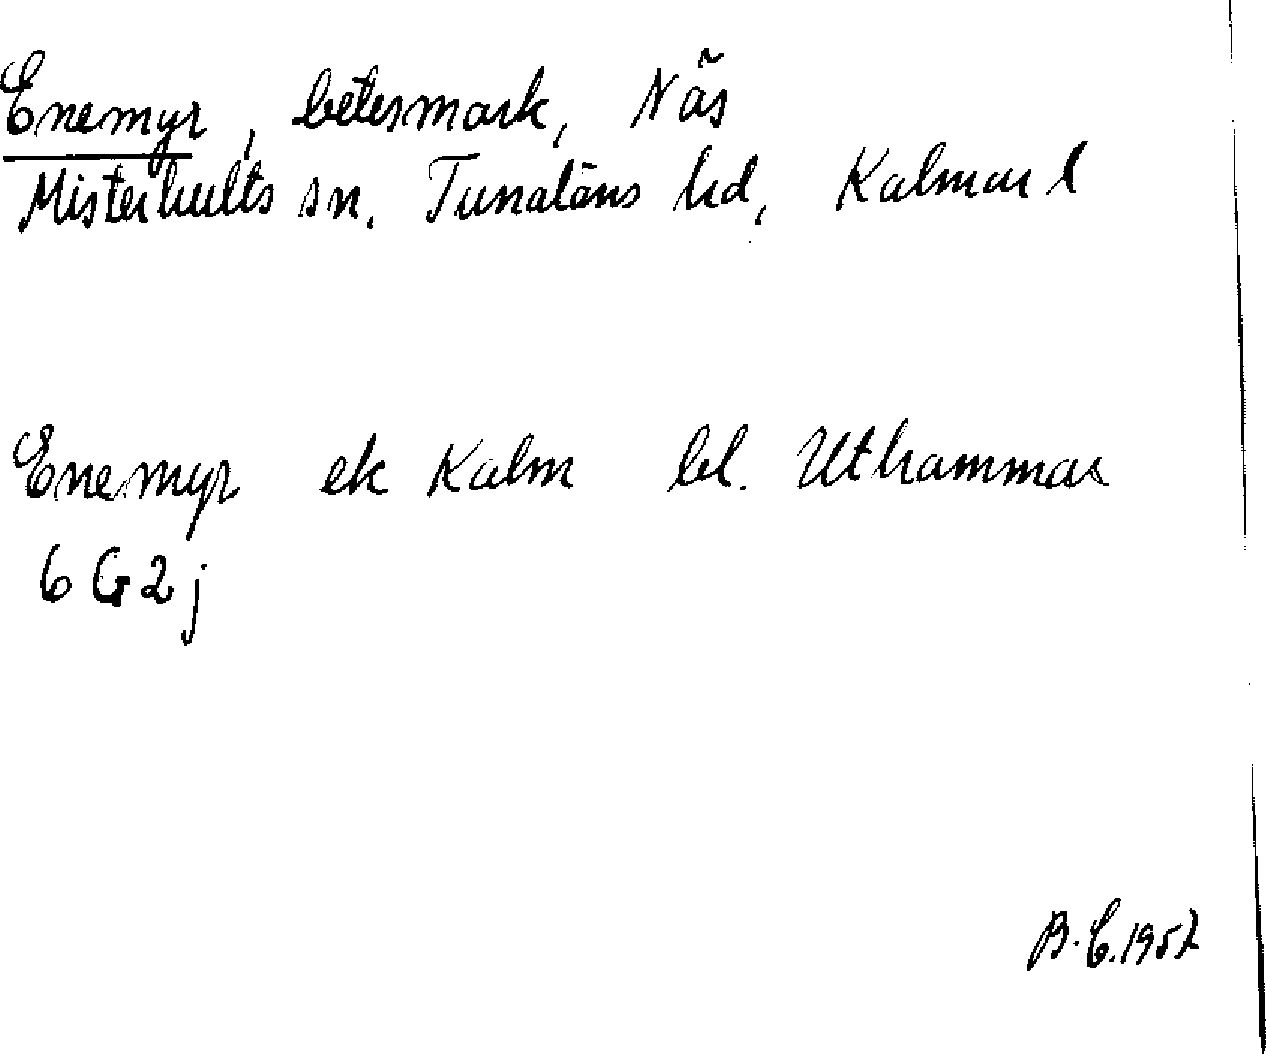 Enemyr, betesmark, Näs
Misterhults sn. Tunaläns hd, Kalmar l
Enemyr ek Kalm bl. Uthammar
6 G 2 j
B.C. 1957